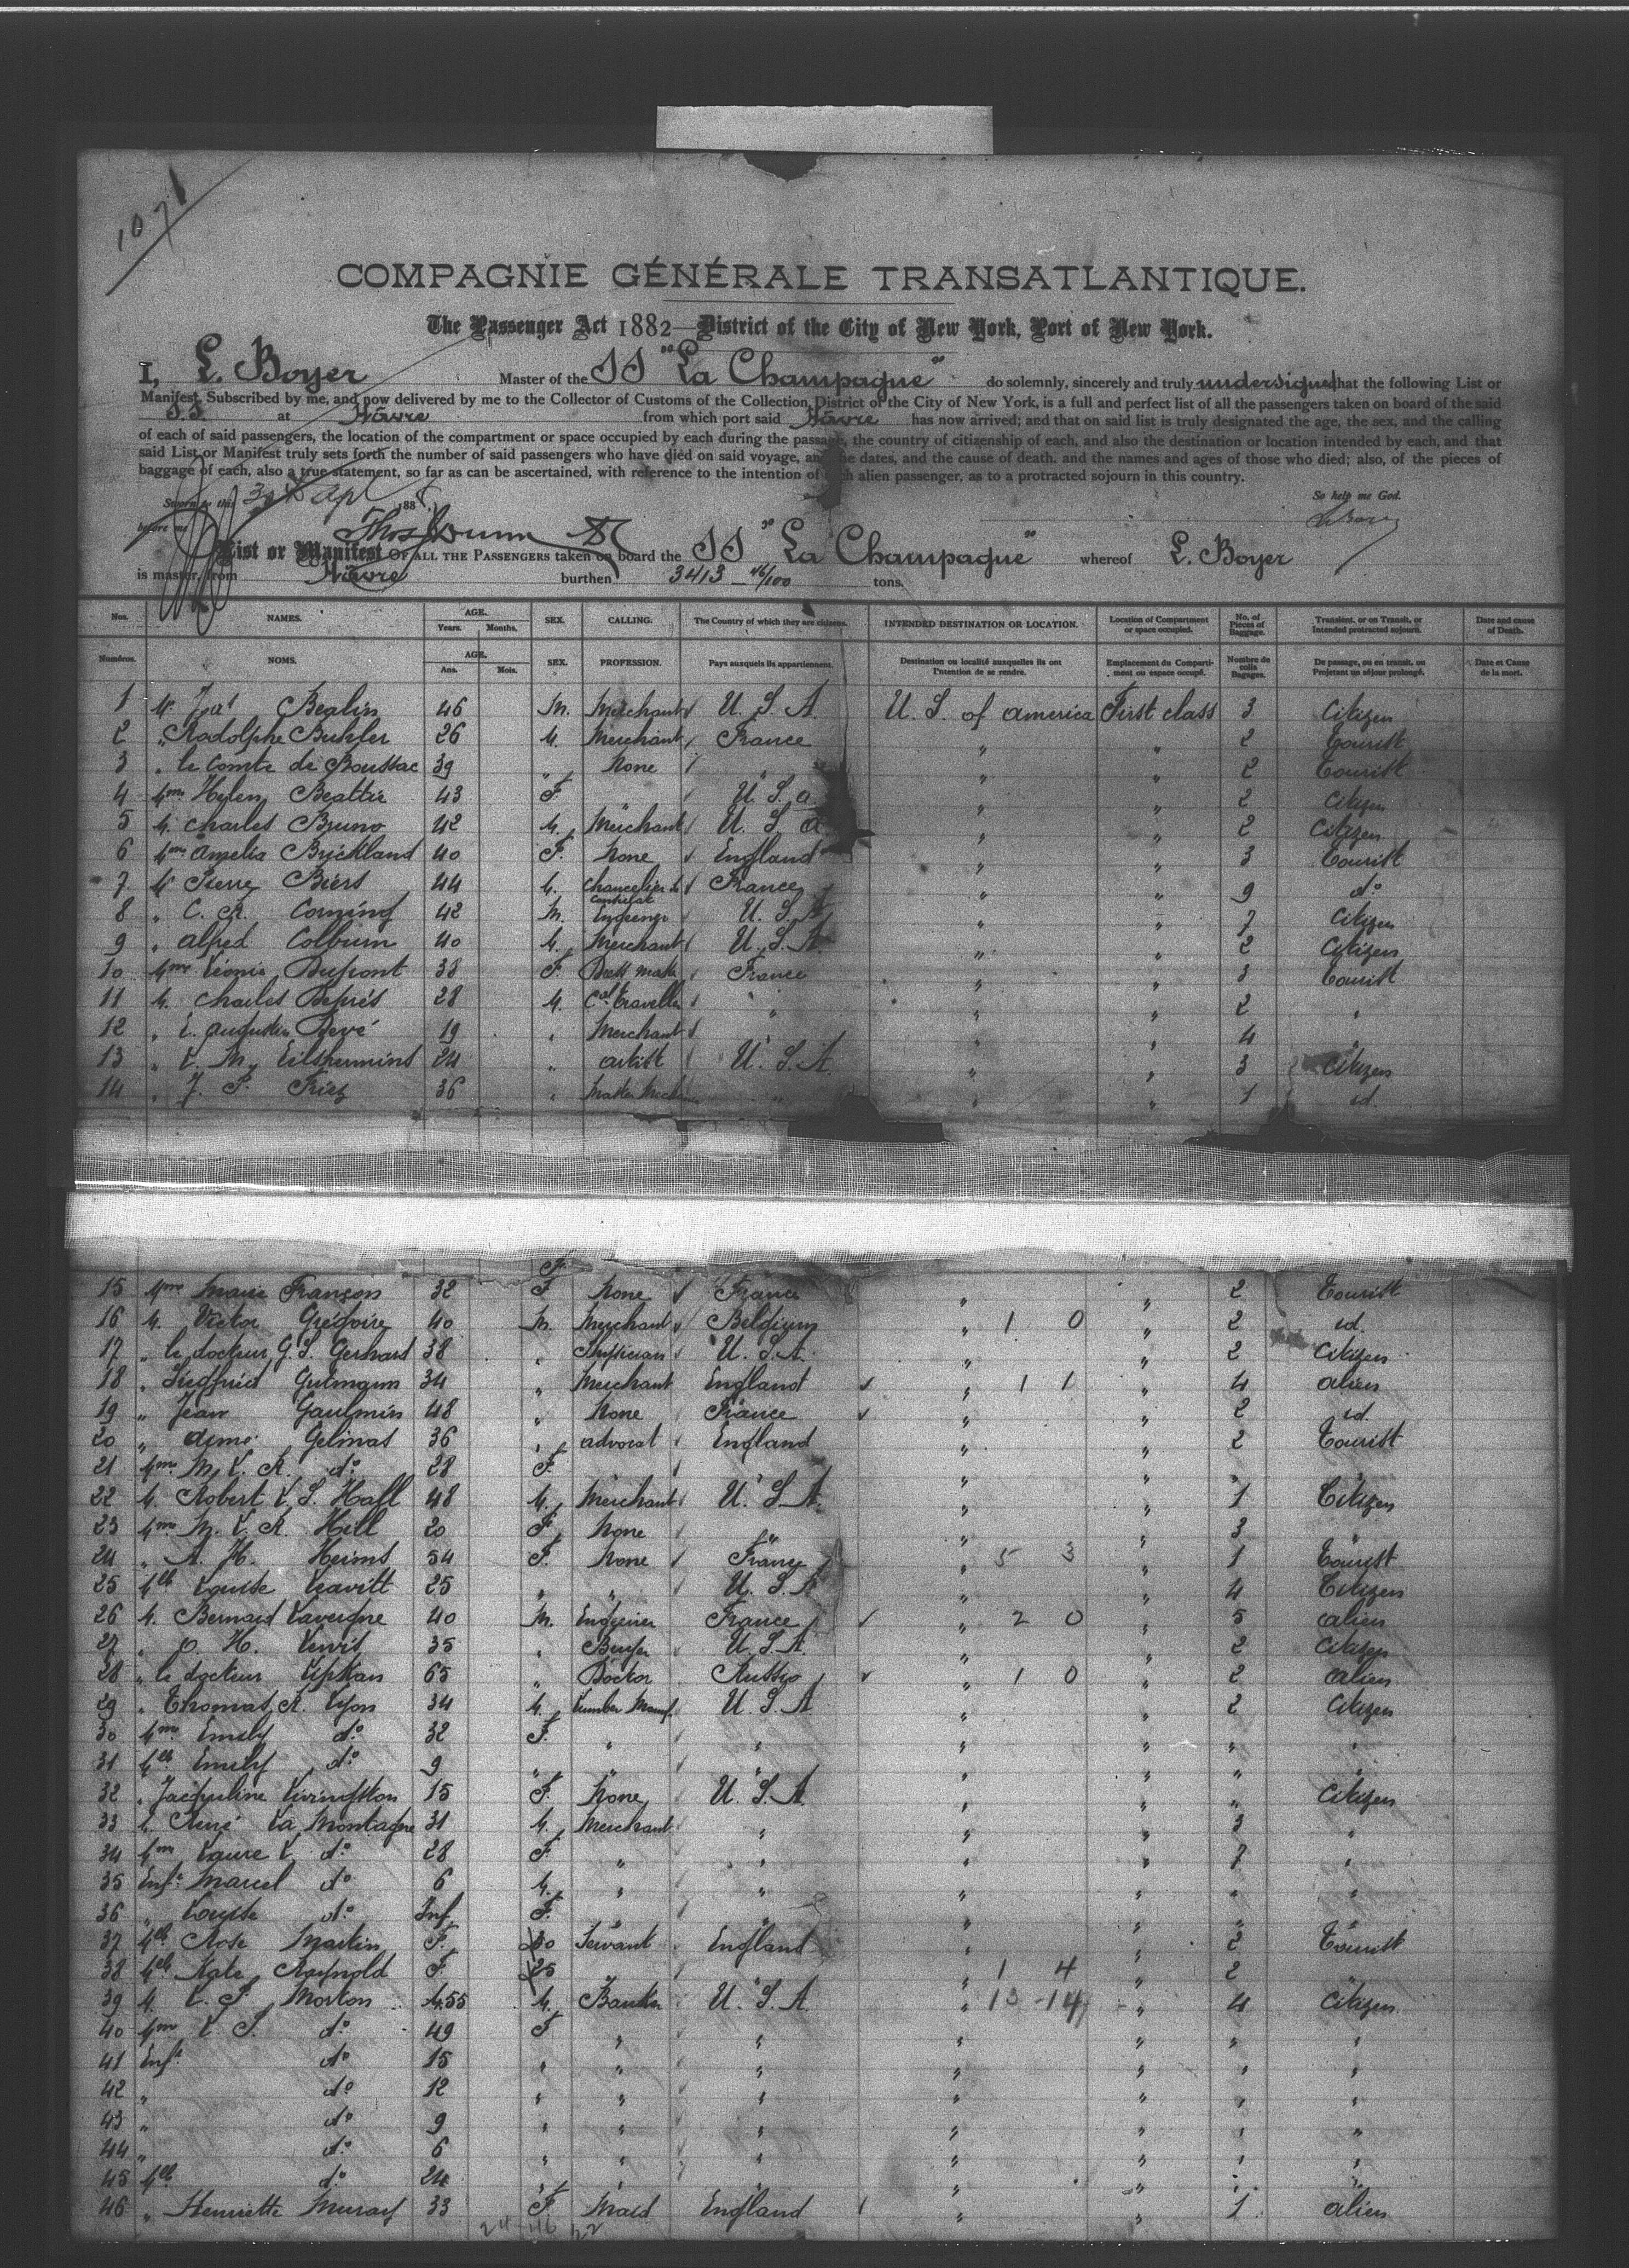 1071
COMPAGNIE GÉNÉRALE TRANSATLANTIQUE.
The Passenger Act 1882—District of the City of New York, Port of New York.
I, L. Boyer Master of the SS "La Champagne" do solemnly, sincerely and truly undersigned that the following List or
Manifest, Subscribed by me, and now delivered by me to the Collector of Customs of the Collection District of the City of New York, is a full and perfect list of all the passengers taken on board of the said
SS at Hâvre from which port said Hâvre has now arrived; and that on said list is truly designated the age, the sex, and the calling
of each of said passengers, the location of the compartment or space occupied by each during the passage, the country of citizenship of each, and also the destination or location intended by each, and that
said List or Manifest truly sets forth the number of said passengers who have died on said voyage, and the dates, and the cause of death, and the names and ages of those who died; also, of the pieces of
baggage of each, also a true statement, so far as can be ascertained, with reference to the intention of each alien passenger, as to a protracted sojourn in this country.
Sworn to this 30 Apl 188 So help me God.
before me Thos Dunn LBoyer
List or Manifest OF ALL THE PASSENGERS taken on board the SS "La Champagne" whereof L. Boyer
is master, from Hâvre burthen 3413 46/100 tons.
Nos. NAMES. AGE. Years. Months. SEX. CALLING. The Country of which they are citizens. INTENDED DESTINATION OR LOCATION. Location of Compartment or space occupied. No. of Pieces of Baggage. Transient, or on Transit, or Intended protracted sojourn. Date and cause of Death.
Numéros. NOMS. AGE. Ans. Mois. SEX. PROFESSION. Pays auxquels ils appartiennent. Destination ou localité auxquelles ils ont l'intention de se rendre. Emplacement du Compartiment ou espace occupé. Nombre de colis Bagages. De passage, ou en transit, ou Projetant un séjour prolongé. Date et Cause de la mort.
1 M. Bealin 46 M. Merchant U. S. A. U. S. of America First class 3 Citizen
2 " Rodolphe Buhler 26 M. Merchant France " " 2 Tourist
3 " le Comte de Boussac 39 " None " " " 2 Tourist
4 Mme Helen Beattie 43 F. " U. S. A. " " 2 Citizen
5 M. Charles Bruno 42 M. Merchant U. S. A. " " 2 Citizen
6 Mme Amelia Brickland 40 F. None England " " 3 Tourist
7 M. Pierre Biers 44 M. Chancelier de Consulat France " " 9 do
8 " C. R. 42 M. U. S. A. " " 7 Citizen
9 " Alfred Colburn 40 M. Merchant U. S. A. " " 2 Citizen
10 Mme Léonie Dupont 38 F. Dress maker France " " 3 Tourist
11 M. Charles Deprés 28 M. Cal Traveller " " " 2 "
12 " E. Augustin Devé 19 " Merchant " " " 4 "
13 " L. M. 24 " artist U. S. A. " " 3 Citizen
14 " J. P. Friez 36 " " " " 1 id.
15 Mme Marie Françon 32 F. None France " " 2 Tourist
16 M. Victor Grégoire 40 M. Merchant Belgium " 1 0 " 2 id.
17 " le docteur G. S. Gerhard 38 " Physician U. S. A. " " 2 Citizen
18 " Siegfried Gutmann 34 " Merchant England " 1 1 " 4 alien
19 " Jean Gaulmin 48 " None France " " 2 id.
20 " Gelinas 36 " advocat England " " 2 Tourist
21 Mme M. L. R. do 28 F. " " " " "
22 M. Robert L. S. Hall 48 M. Merchant U. S. A. " " 1 Citizen
23 Mme M. L. R. Hill 20 F. None " " " 3 "
24 " A. H. Heims 54 F. None France " 5 3 " 1 Tourist
25 Mlle Louise Leavitt 25 " " U. S. A. " " 4 Citizen
26 M. Bernard Lavergne 40 M. Engineer France " 2 0 " 5 alien
27 " O. H. Lewis 35 " Buyer U. S. A. " " 2 Citizen
28 " le docteur 65 " Doctor " 1 0 " 2 alien
29 " Thomas R. Lyon 34 M. Lumber Manuf. U. S. A. " " 2 Citizen
30 Mme Emily do 32 F. " " " " " "
31 Mlle Emily do 9 " " " " " " "
32 " Jacqueline Livingston 15 F. None U. S. A. " " " Citizen
33 M. René La Montagne 31 M. Merchant " " " 3 "
34 Mme Laure L. do 28 F. " " " " 7 "
35 Enft Marcel do 6 M. " " " " " "
36 " Louise do Inf F. " " " " " "
37 Mlle Rose Martin F. 30 Servant England " " 2 Tourist
38 Mlle Kate Raynold F. 25 " " " 1 4 " 2 "
39 M. L. P. Morton M. 55 M. Banker U. S. A. " 13 - 14 " 4 Citizen
40 Mme L. P. do 49 F " " " " " "
41 Enft do 15 " " " " " " "
42 " do 12 " " " " " " "
43 " do 9 " " " " " " "
44 " do 6 " " " " " " "
45 Mlle do 24 " " " " " " "
46 " Henriette Murray 33 F. Maid England " " 1 alien
24 46 22